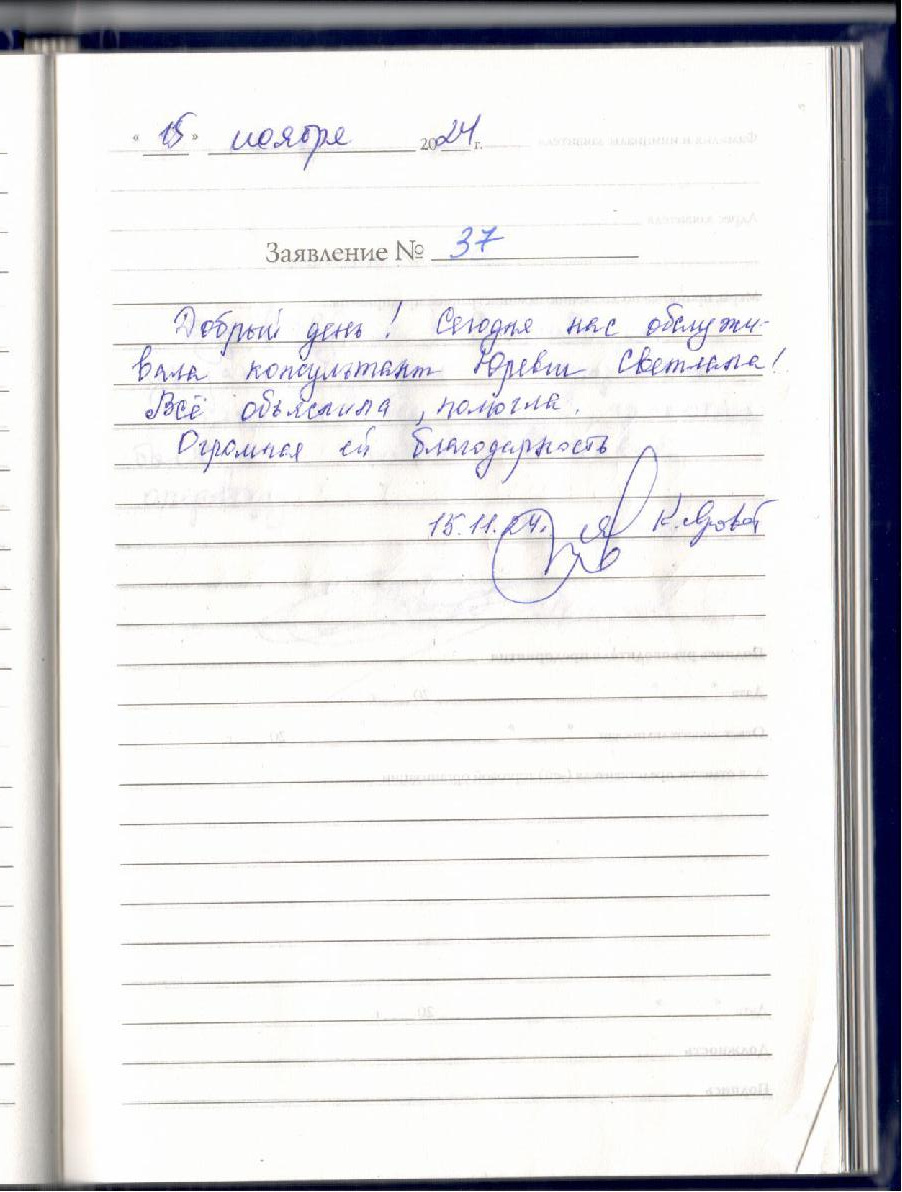 « 15 » ноября 2024 г.
Заявление № 37
Добрый день! Сегодня нас обслужи-
вала консультант Юревич Светлана!
Всё объяснила, помогла.
Огромная ей благодарность
15.11.24.